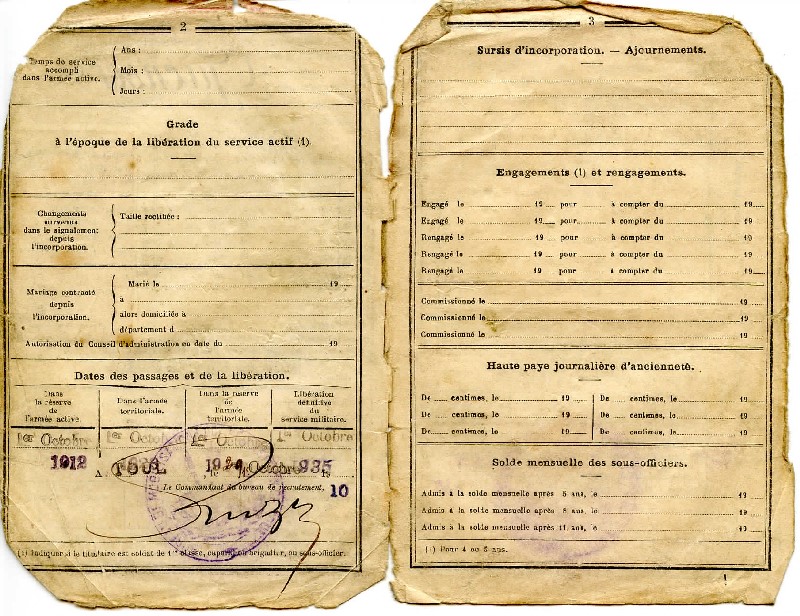 2
Temps de service
accompli
dans l'armée active.
Ans :
Mois :
Jours :
Grade
à l'époque de la libération du service actif (1).
Changements
survenus
dans le signalement
depuis
l'incorporation.
Taille rectifiée :
Mariage contracté
depuis
l'incorporation.
Marié le 19
à
alors domiciliée à
département d
Autorisation du Conseil d'administration en date du 19
Dates des passages et de la libération.
Dans
la réserve
de
l'armée active.
Dans l'armée
territoriale.
Dans la réserve
de
l'armée
territoriale.
Libération
définitive
du
service militaire.
1er Octobre 1er Octob 1er Octobre 1er Octobre
1912
A TOUL Octobre 935
Le Commandant du bureau de recrutement, 10
(1) Indiquer si le titulaire est soldat de 1re classe, caporal ou brigadier, ou sous-officier.
3
Sursis d'incorporation. — Ajournements.
Engagements (1) et rengagements.
Engagé le 19 pour à compter du 19
Engagé le 19 pour à compter du 19
Rengagé le 19 pour à compter du 19
Rengagé le 19 pour à compter du 19
Rengagé le 19 pour à compter du 19
Commissionné le 19
Commissionné le 19
Commissionné le 19
Haute paye journalière d'ancienneté.
De centimes, le 19 De centimes, le 19
De centimes, le 19 De centimes, le 19
De centimes, le 19 De centimes, le 19
Solde mensuelle des sous-officiers.
Admis à la solde mensuelle après 5 ans, le 19
Admis à la solde mensuelle après 8 ans, le 19
Admis à la solde mensuelle après 11 ans, le 19
(1) Pour 4 ou 5 ans.